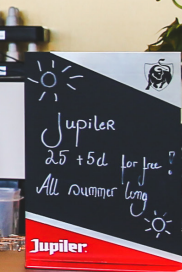 Jupiler
25 + 5cl for free!
All summer long
Jupiler.